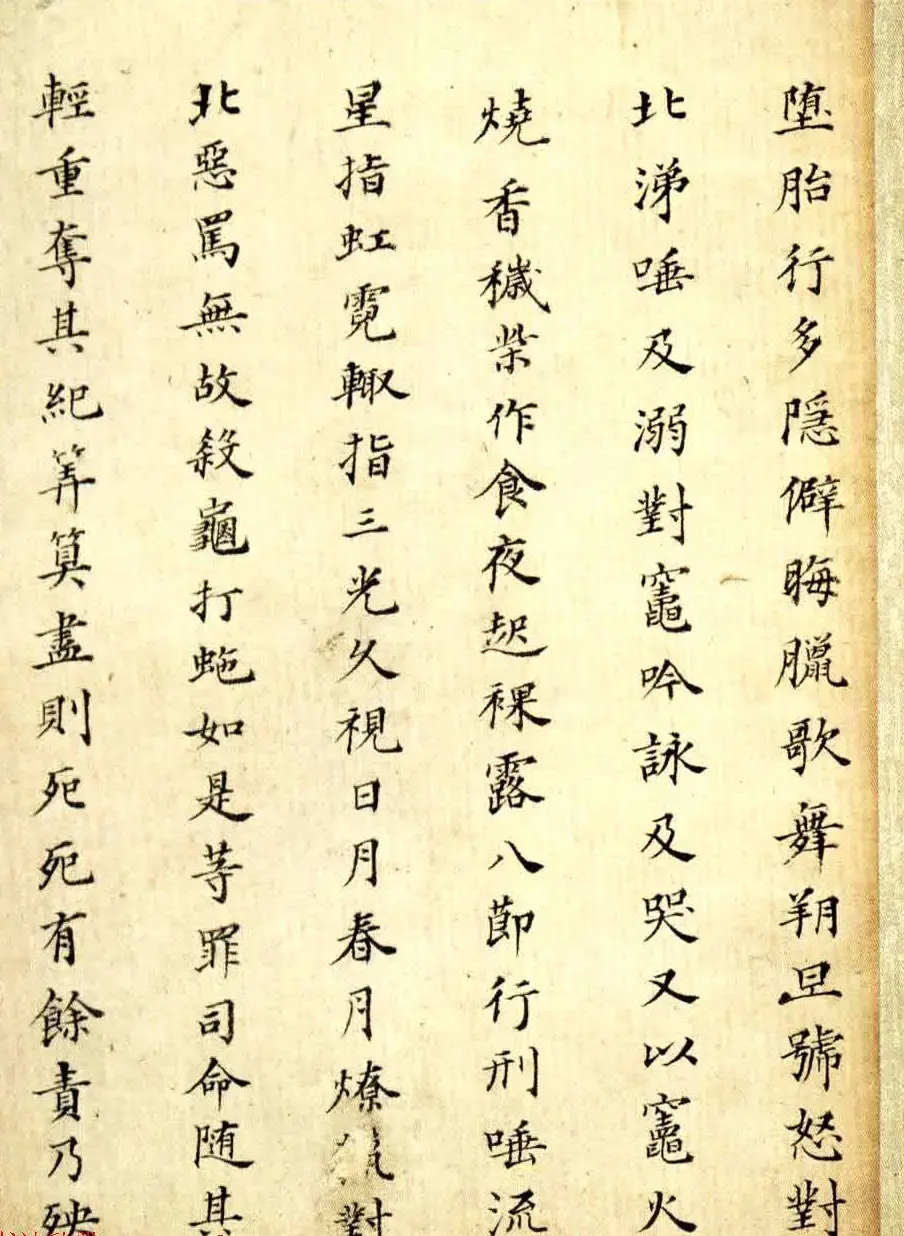 墮胎行多隱僻晦臘歌舞朔旦號怒對
北涕唾及溺對竈吟詠及哭又以竈火
燒香穢柴作食夜起裸露八節行刑唾流
星指虹霓輙指三光久視日月春月燎對
北惡罵無故殺龜打虵如是等罪司命随其
輕重奪其紀筭筭盡則死死有餘責乃殃